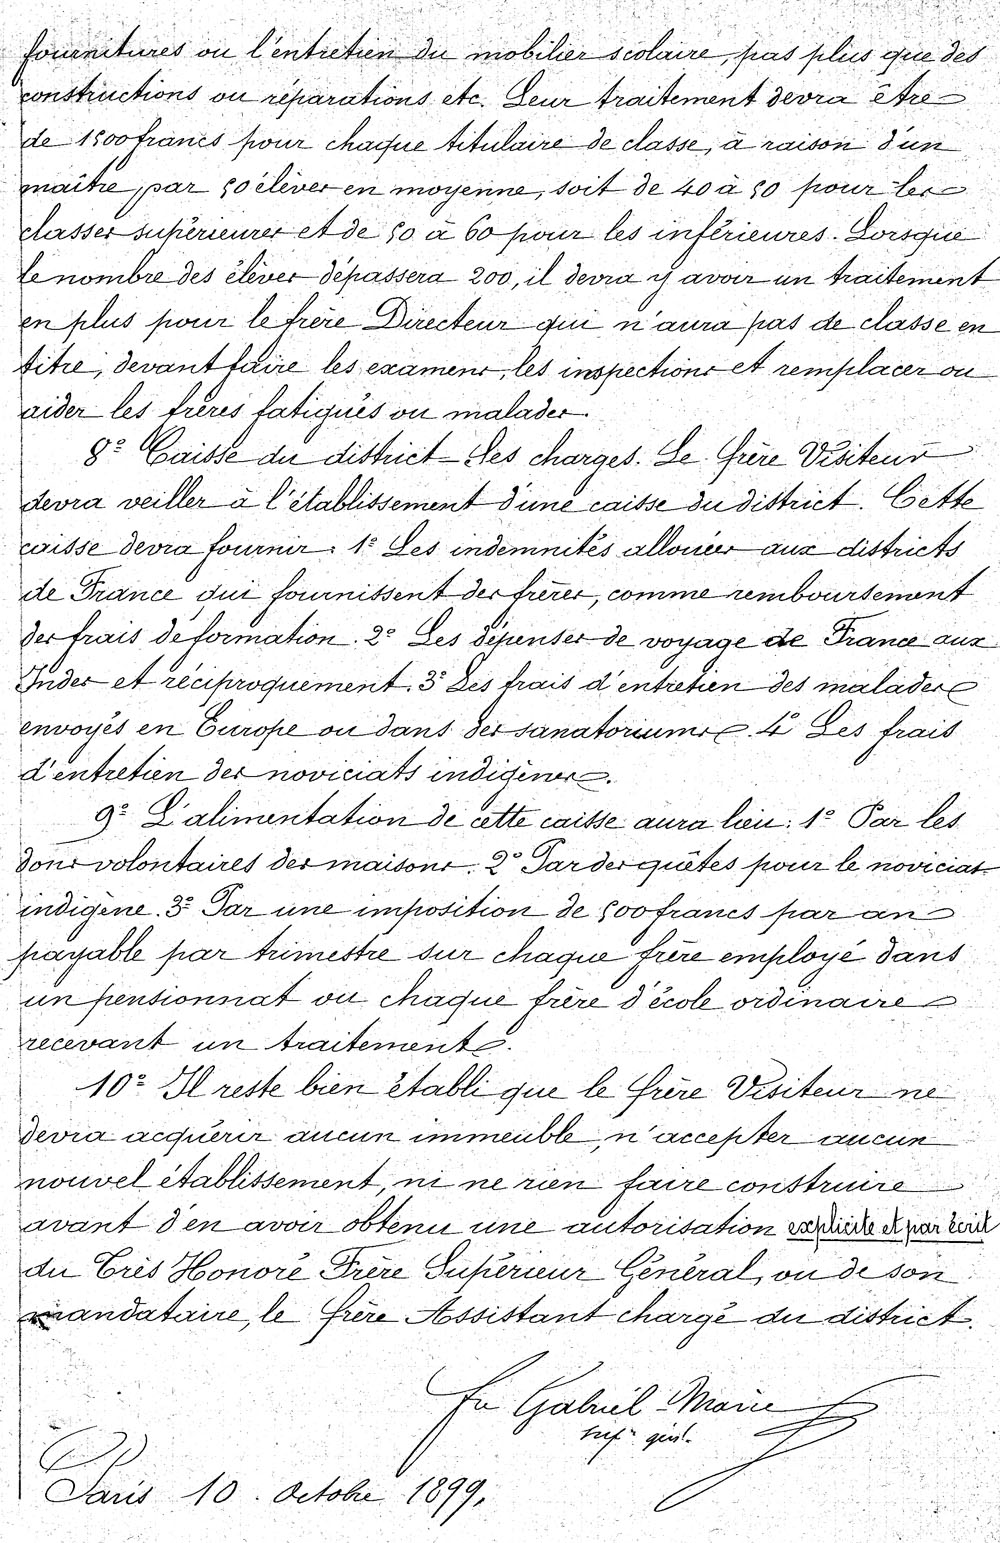 fournitures ou l'entretien du mobilier scolaire, pas plus que des
constructions ou réparations etc. Leur traitement devra être
de 1500 francs pour chaque titulaire de classe, à raison d'un
maître, par 50 élèves en moyenne, soit de 40 à 50 pour les
classes supérieures et de 50 à 60 pour les inférieures. Lorsque
le nombre des élèves dépassera 200, il devra y avoir un traitement
en plus pour le frère Directeur qui n'aura pas de classe en
titre, devant faire les examens, les inspections et remplacer ou
aider les frères fatigués ou malades.
8º Caisse du district - Ses charges. Le frère Visiteur
devra veiller à l'établissement d'une caisse du district. Cette
caisse devra fournir: 1º Les indemnités allouées aux districts
de France qui fournissent des frères, comme remboursement
des frais de formation. 2º Les dépenses de voyage de France aux
Indes et réciproquement. 3º Les frais d'entretien des malades
envoyés en Europe ou dans des sanatoriums. 4º Les frais
d'entretien des noviciats indigènes.
9º L'alimentation de cette caisse aura lieu: 1º Par les
dons volontaires des maisons. 2º Par des quêtes pour le noviciat
indigène. 3º Par une imposition de 500 francs par an
payable par trimestre sur chaque frère employé dans
un pensionnat ou chaque frère d'école ordinaire
recevant un traitement.
10º Il reste bien établi que le frère Visiteur ne
devra acquérir aucun immeuble, n'accepter aucun
nouvel établissement, ni ne rien faire construire
avant d'en avoir obtenu une autorisation explicite et par écrit
du Très Honoré Frère Supérieur Général, ou de son
mandataire, le frère Assistant chargé du district.
Fr Gabriel-Marie
supr génl.
Paris 10. Octobre 1899.